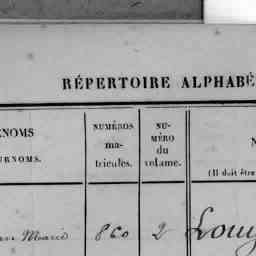 RÉPERTOIRE ALPHABÉ
ÉNOMS
URNOMS.
NUMÉROS
ma-
tricules.
NU-
MÉRO
du
volume.
N
(Il doit être
Marie 860 2 Louy